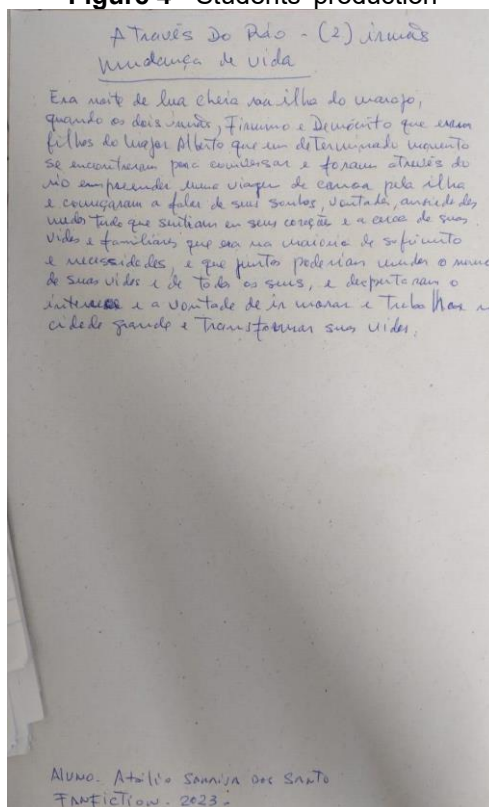 Figure 4 - Students' production
Através Do Rio - (2) irmãs
mudança de vida
Era noite de lua cheia na ilha do marajo,
quando os dois irmãos, Firmino e Demócrito que eram
filhos do major Alberto que um determinado momento
se encontraram para conversar e foram através do
rio empreender uma viagem de canoa pela ilha
e começaram a falar de seus sonhos, vontades, ansiedades
medos tudo que sentiam en seus coração e a cerca de suas
vidas e familiares que era na maioria de sofrimento
e necessidades, e que juntos poderiam mudar o rumo
de suas vidas e de todos os seus, e despertaram o
interesse e a vontade de ir morar e Trabalhar n
cidade grande e Transformar suas vidas.
Aluno. Atailio Saraiva dos Santo
FANFICTION. 2023.